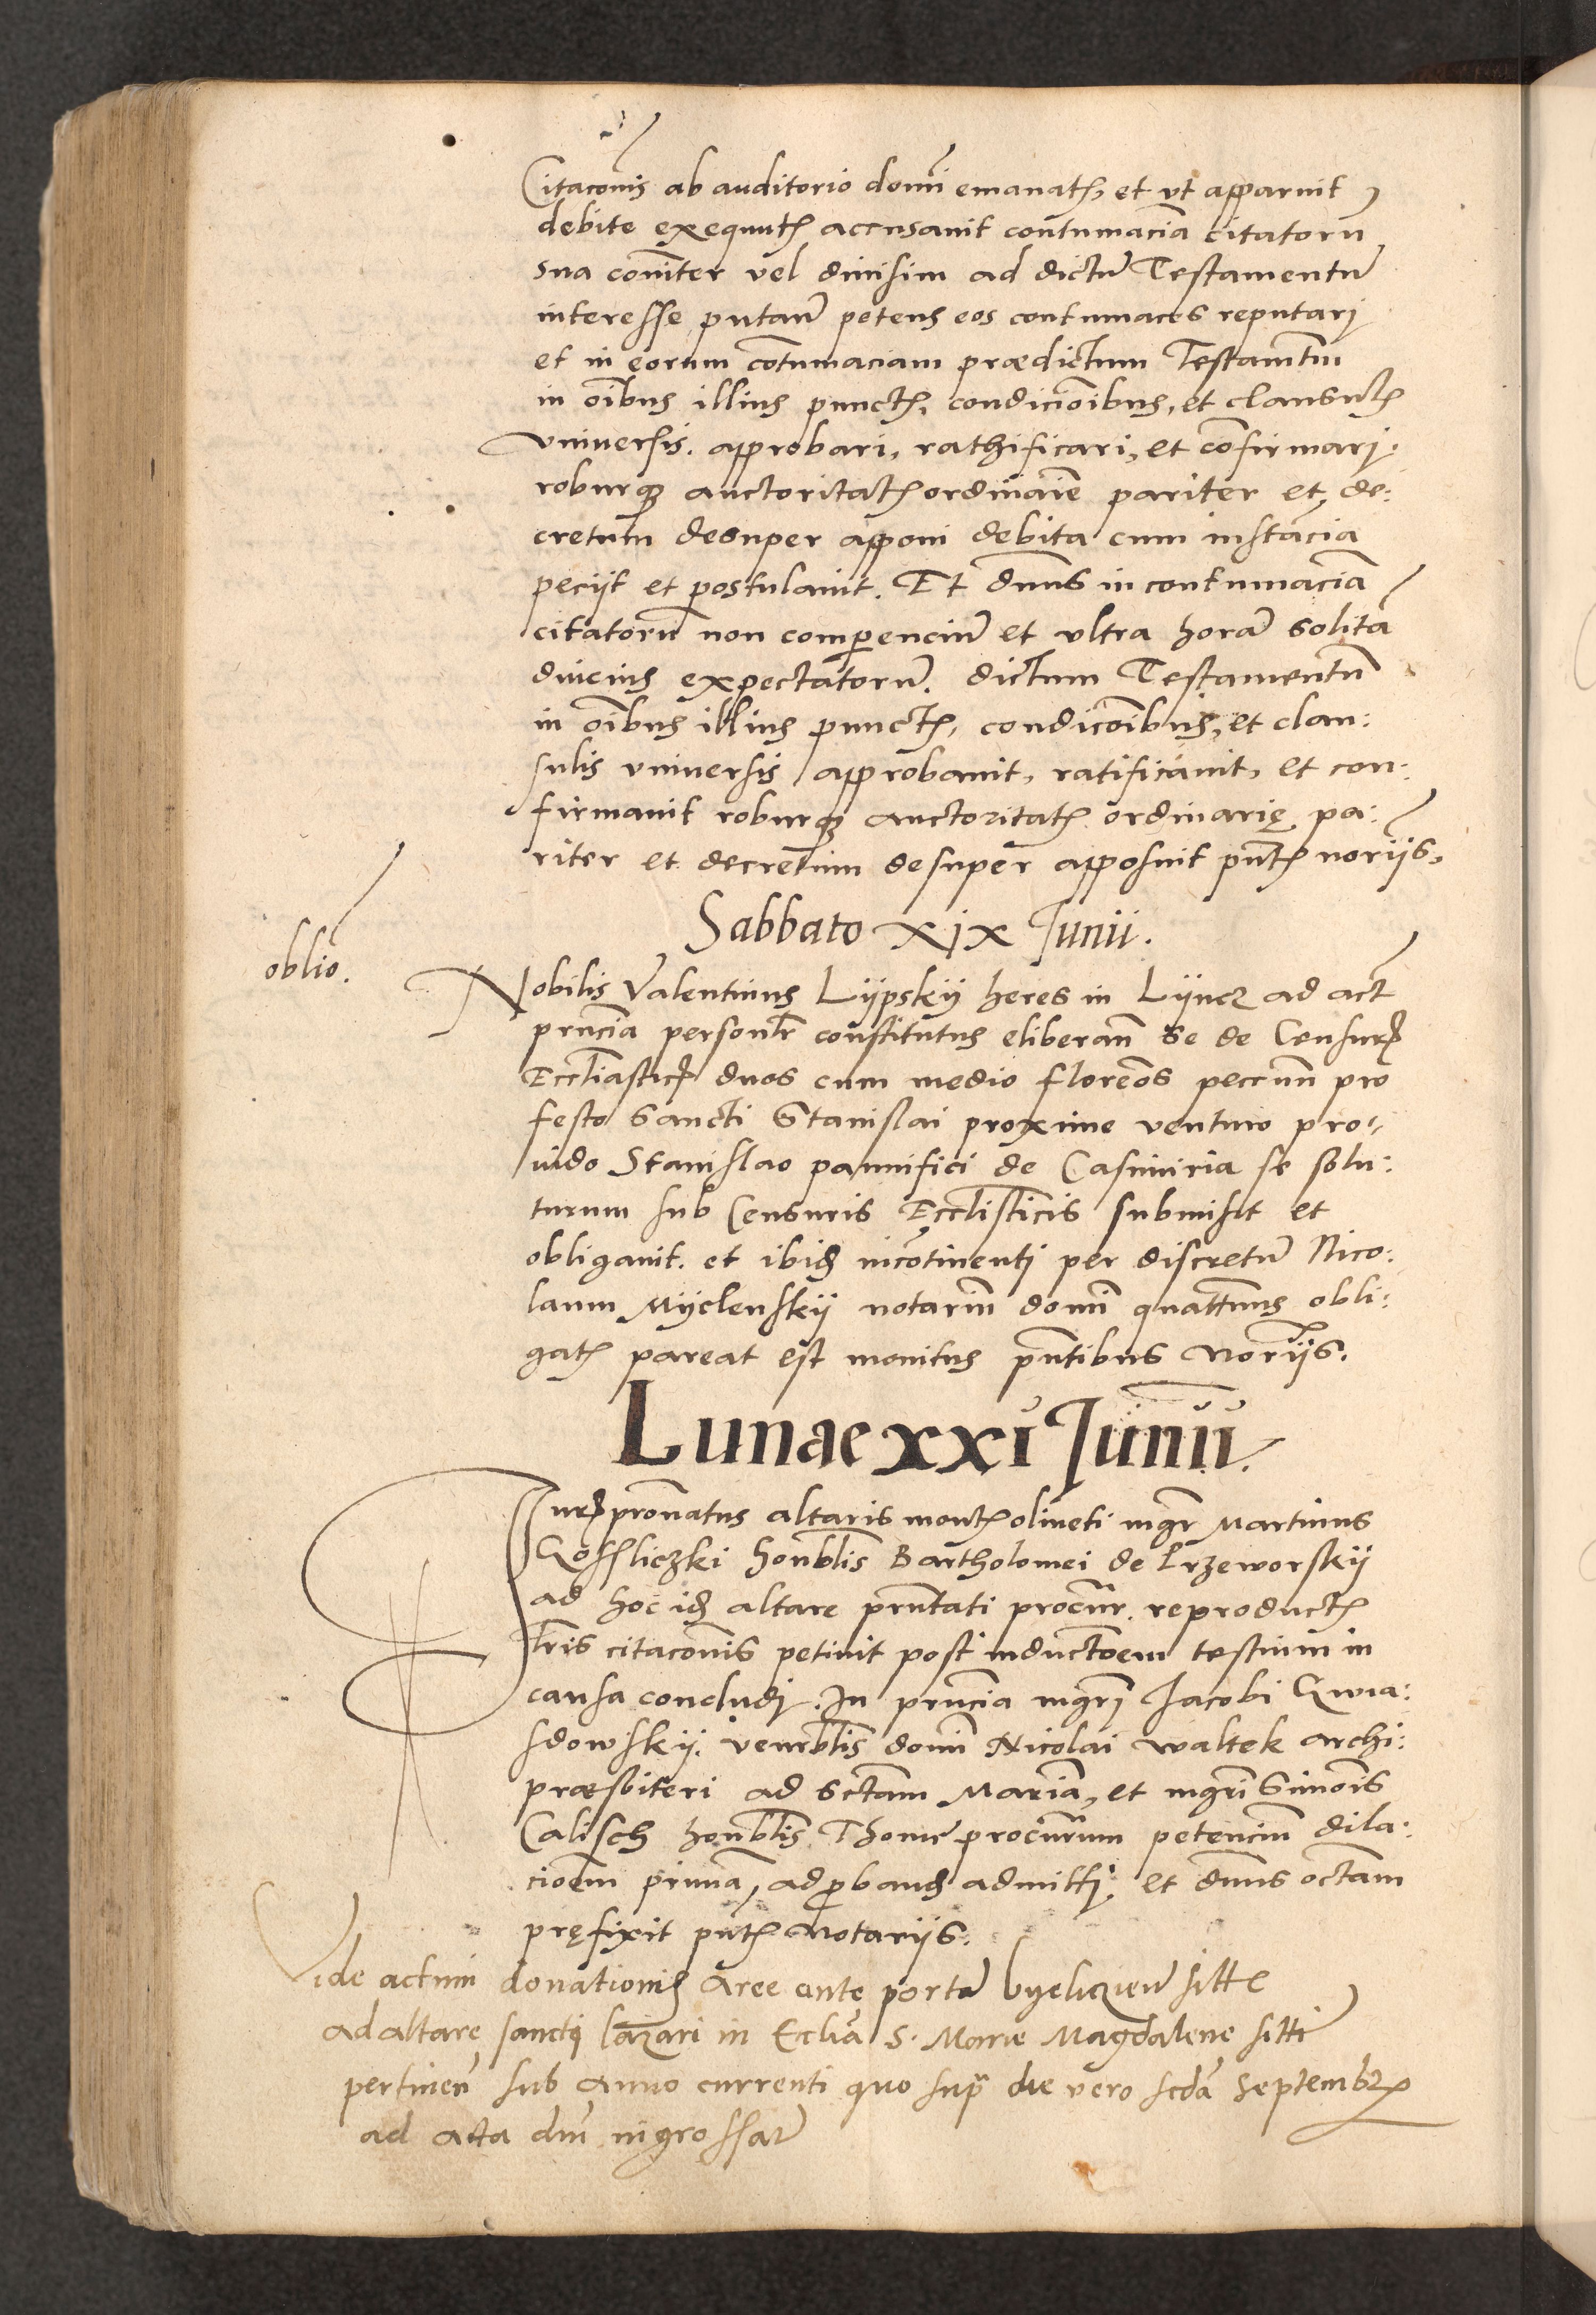 Citacoms ab auditorio domi emanatꝭ, et vt apparuit
debite exequutꝭ accusauit contumaciã citatorũ
sua comiter vel diuisim ad dictũ Testamentũ
interesse putañ petens eos contumaces reputari
et in eorum cõtumaciam prædictum Testamtm
in oibus illius punctꝭ, condicioibus, et clausulꝭ
vniuersis. approbari, rathificari, et cõfirmari.
roburqꝫ auctoritatꝭ ordinarie pariter et, de:
cretum desuper apponi debita cum instãcia
peciit et postulauit. Et dnns in contumaciã
citatorũ non comperenciũ et vltra horã solitã
diucius expectatorũ. dictum Testamentũ
in oibus illius punctꝭ, condicoibus, et clau:
sulis vniuersis approbauit, ratificauit, et con:
firmauit roburqꝫ auctoritatꝭ ordinarię pa:
riter et decretum desuper apposuit pñtꝭ noriis,
Sabbato xix Junii.
oblio.
Nobilis Valentinus Lypsky heres in Lyncz ad act
pñcia personlr constitutus eliberañ se de Censurꝭ
Ecctiasticꝭ duos cum medio floreos peccun pro
festo Sancti Stanislai proxime venturo pro:
uido Stanislao pannifici de Casimiria se solu:
turum sub Censuris Ecctisticis submisit et
obligauit. et ibidꝫ incõtinenti per discretũ Nico:
laum Myslensky notariũ domi quattnus obli:
gatꝭ pareat est monitus pñtibus Noriis.
Lunae xxi Junii.
Jurꝭpronatus altaris montꝭ oliueti mgr Martinus
Gossliczki honbtis Bartholomei de Przeworsky
ad hoc idꝫ altare pñtati procur. reproductꝭ
tris citacoms petiuit post inductoem testium in
causa concludi. In pñcia mgri Jacobi Gwia:
sdowsky. venerbtis domi Nicolai Waltek archi:
præsbiteri ad sctam Mariã, et mgri Simois
Calisch honbtis Thome procurum petenciũ dila:
cioem primã, ad probandꝫ admitti. et dnns octam
pręfixit pñtꝭ Notariis.
Vide actum donationis aree ante portã byelicziem sitte
ad altare sancti lazari in Ecctia S. Marie Magdalene sitti
pertineñ sub anno currenti quo supr die vero scda Septembrꝭ
ad acta dni ingrossatũ